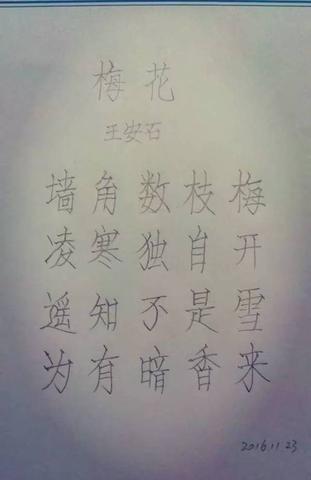 梅花
王安石
墙角数枝梅
凌寒独自开
遥知不是雪
为有暗香来
2016.11.23